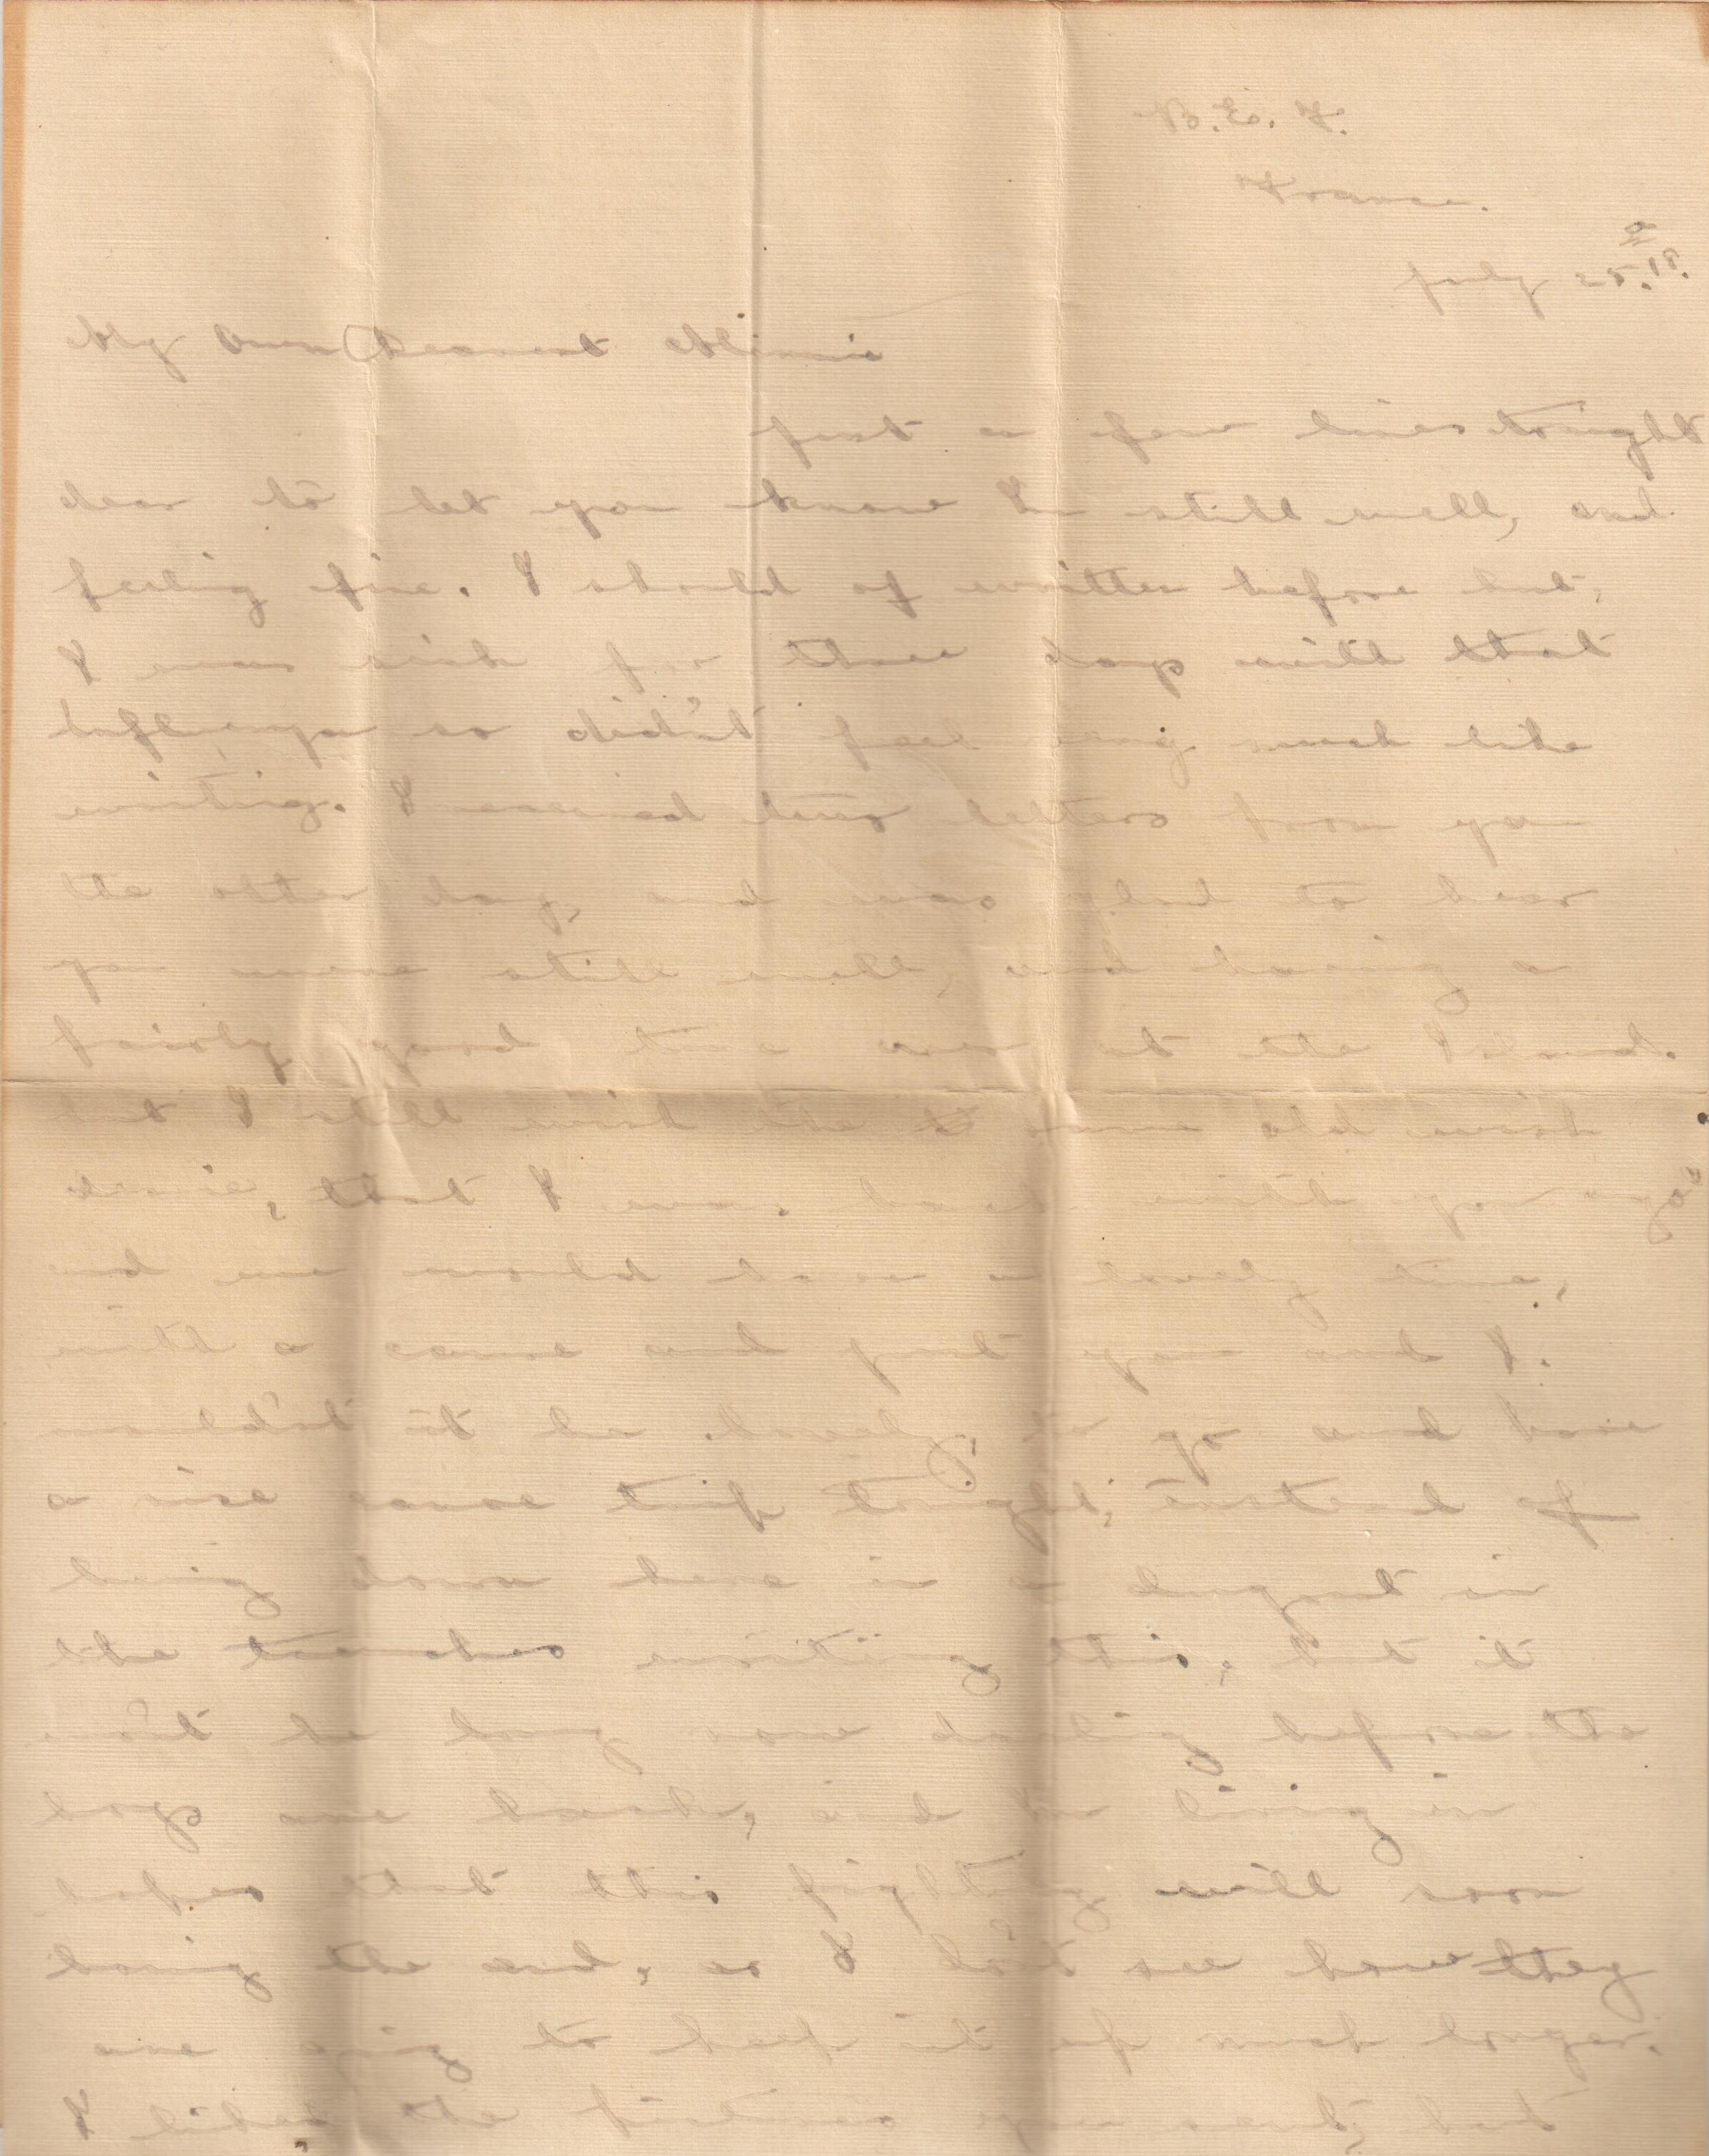 B.E.F.
France.
July 25. 18.
My Own Dearest Minnie
Just a few lines tonight
dear to let you know I'm still well, and
feeling fine. I should of written before but,
I was sick for three days with that
Influenza so did'nt feel very much like
writing. I received two letters from you
the other day, and was glad to hear
you were still well, and having a
fairly good time over at the Island.
but I still wish the same old wish
dearie, that I was back with you again
and we would have a lovely time,
with a canoe and just you and I.
would'nt it be lovely, to go and have
a nice canoe trip tonight, instead of
being down here in a dugout in
the trenches writing this, but it
wo'nt be long now darling before the
boys are back, and I'm living in
hopes that this fighting will soon
bring the end, as I do'nt see how they
are going to keep it up much longer.
I liked the pictures you sent, but